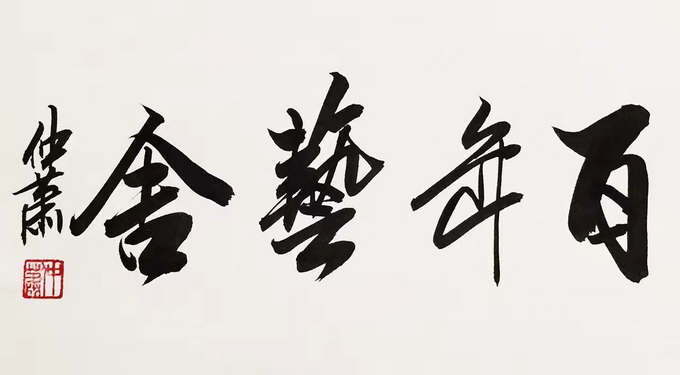 百年藝舍
仲萧